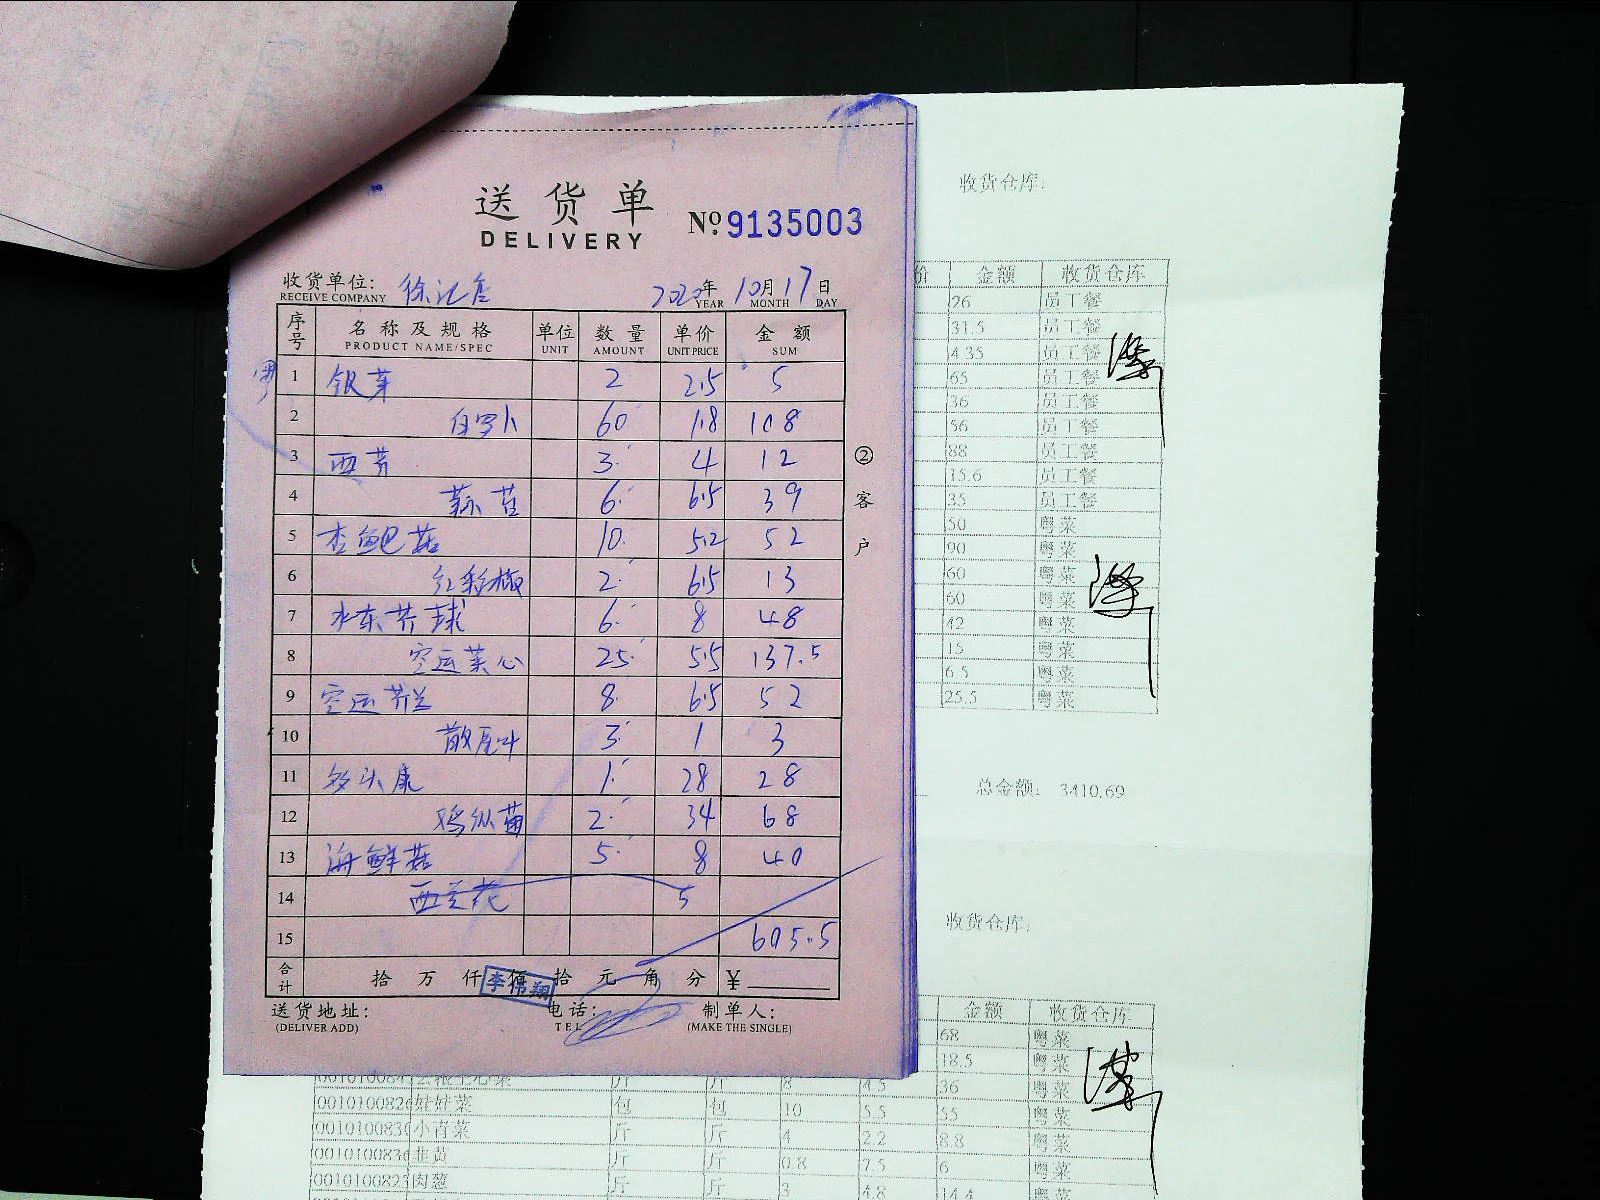 送货单
DELIVERY
№ 9135003
收货单位: 徐汇店 2020年10月17日
RECEIVE COMPANY YEAR MONTH DAY
序号 名称及规格 单位 数量 单价 金额
PRODUCT NAME/SPEC UNIT AMOUNT UNIT PRICE SUM
1 银芽 2 2.5 5
2 白罗卜 60 1.8 108
3 西芹 3 4 12
4 蒜苔 6 6.5 39
5 杏鲍菇 10 5.2 52
6 红彩椒 2 6.5 13
7 水东芥球 6 8 48
8 空运菜心 25 5.5 137.5
9 空运芥兰 8 6.5 52
10 散尾叶 3 1 3
11 1 28 28
12 鸡枞菌 2 34 68
13 海鲜菇 5 8 40
14 西兰花 5
15 605.5
合计 拾万仟佰拾元角分 ¥
李伟翔
送货地址: 电话: 制单人:
(DELIVER ADD) TEL (MAKE THE SINGLE)
② 客户
收货仓库:
价 金额 收货仓库
26 员工餐
31.5 员工餐
4.35 员工餐
65 员工餐
36 员工餐
56 员工餐
88 员工餐
15.6 员工餐
35 员工餐
50 粤菜
90 粤菜
60 粤菜
60 粤菜
42 粤菜
15 粤菜
6.5 粤菜
25.5 粤菜
总金额: 3410.69
收货仓库:
金额 收货仓库
68 粤菜
18.5 粤菜
斤 斤 8 4.5 36 粤菜
娃娃菜 包 包 10 5.5 55 粤菜
小青菜 斤 斤 4 2.2 8.8 粤菜
韭黄 斤 斤 0.8 7.5 6 粤菜
肉葱 斤 斤 3 4.8 14.4 粤菜